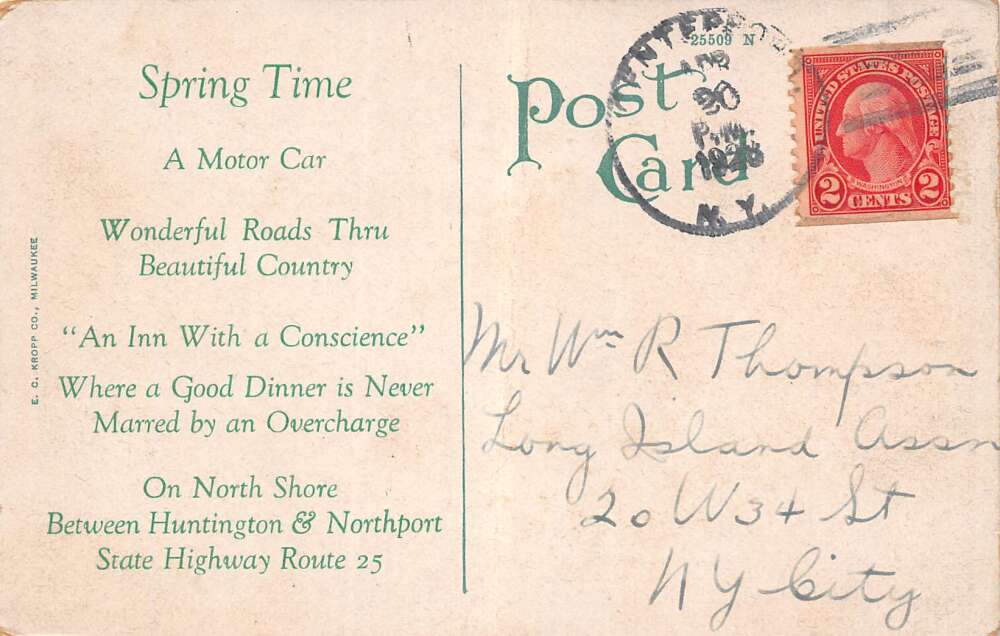 Spring Time
A Motor Car
Wonderful Roads Thru
Beautiful Country
"An Inn With a Conscience"
Where a Good Dinner is Never
Marred by an Overcharge
On North Shore
Between Huntington & Northport
State Highway Route 25
E. C. KROPP CO., MILWAUKEE
25509 N
Post
Card
APR
20
P.M.
N.Y.
UNITED STATES POSTAGE
WASHINGTON
2 CENTS 2
Mr Wm R Thompson
Long Island Assn
20 W 34 St
NY City